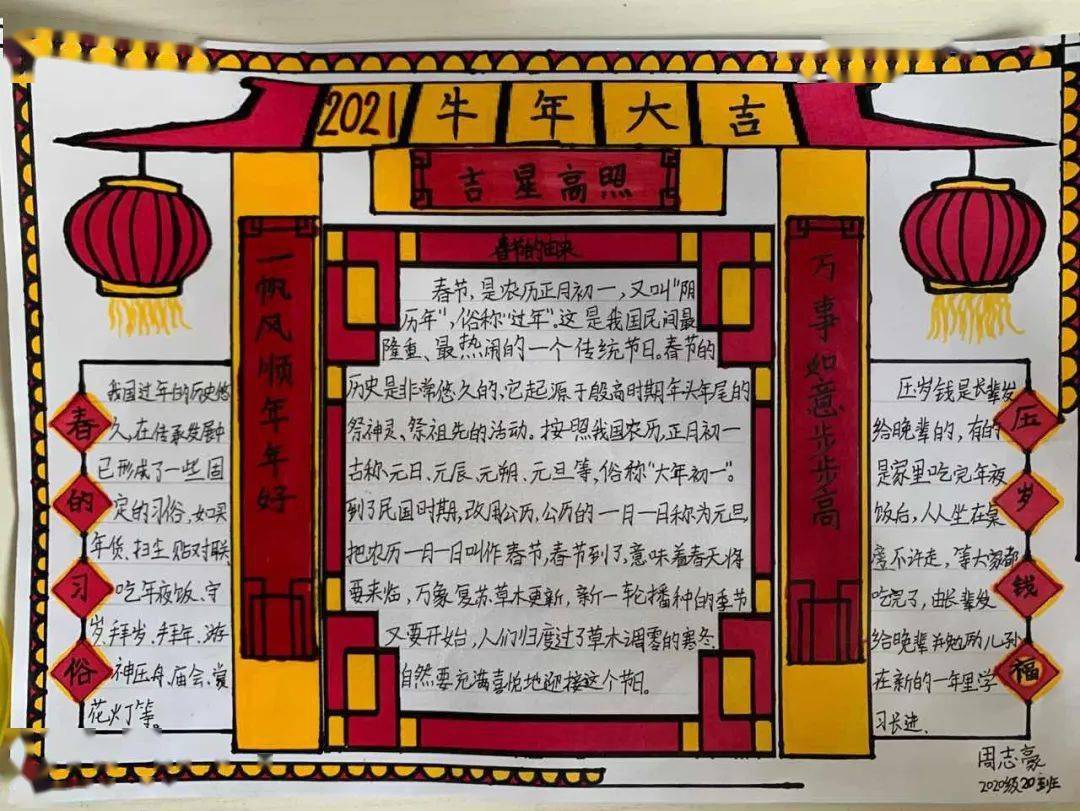 2021牛年大吉
吉星高照
一帆风顺年年好
万事如意步步高
春节的由来
春节，是农历正月初一，又叫“阴
历年”，俗称“过年”。这是我国民间最
隆重、最热闹的一个传统节日。春节的
历史是非常悠久的、它起源于殷商时期年头年尾的
祭神灵、祭祖先的活动。按照我国农历，正月初一
古称元日、元辰、元朔、元旦等，俗称“大年初一”。
到了民国时期，改用公历，公历的一月一日称为元旦，
把农历一月一日叫作春节，春节到了，意味着春天将
要来临，万象复苏草木更新，新一轮播种的季节
又要开始，人们归度过了草木凋零的寒冬
自然要充满喜悦地迎接这个节日。
春的习俗
我国过年的历史悠
久，在传承发展中
已形成了一些固
定的习俗，如买
年货、扫尘、贴对联
吃年夜饭、守
岁、拜岁、拜年、游
神、压舟、庙会、赏
花灯等。
压岁钱福
压岁钱是长辈发
给晚辈的，有的
是家里吃完年夜
饭后，人人坐在桌
旁不许走，等大家都
吃完了，由长辈发
给晚辈并勉励儿孙
在新的一年里学
习长进.
周志豪
2020级20班